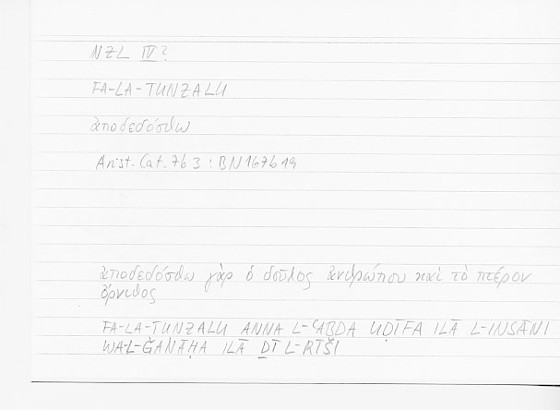 NZL IV?
FA-LA-TUNZALU
ἀποδεδόσθω
Arist. Cat. 7b 3 : BN 167b 19
ἀποδεδόσθω γὰρ ὁ δοῦλος ἀνθρώπου καὶ τὸ πτέρον
ὄρνιθος
FA-LA-TUNZALU ANNA L-ʿABDA UḌĪFA ILĀ L-INSĀNI
WA-L-ǦANĀḤA ILĀ ḎĪ L-RĪŠI